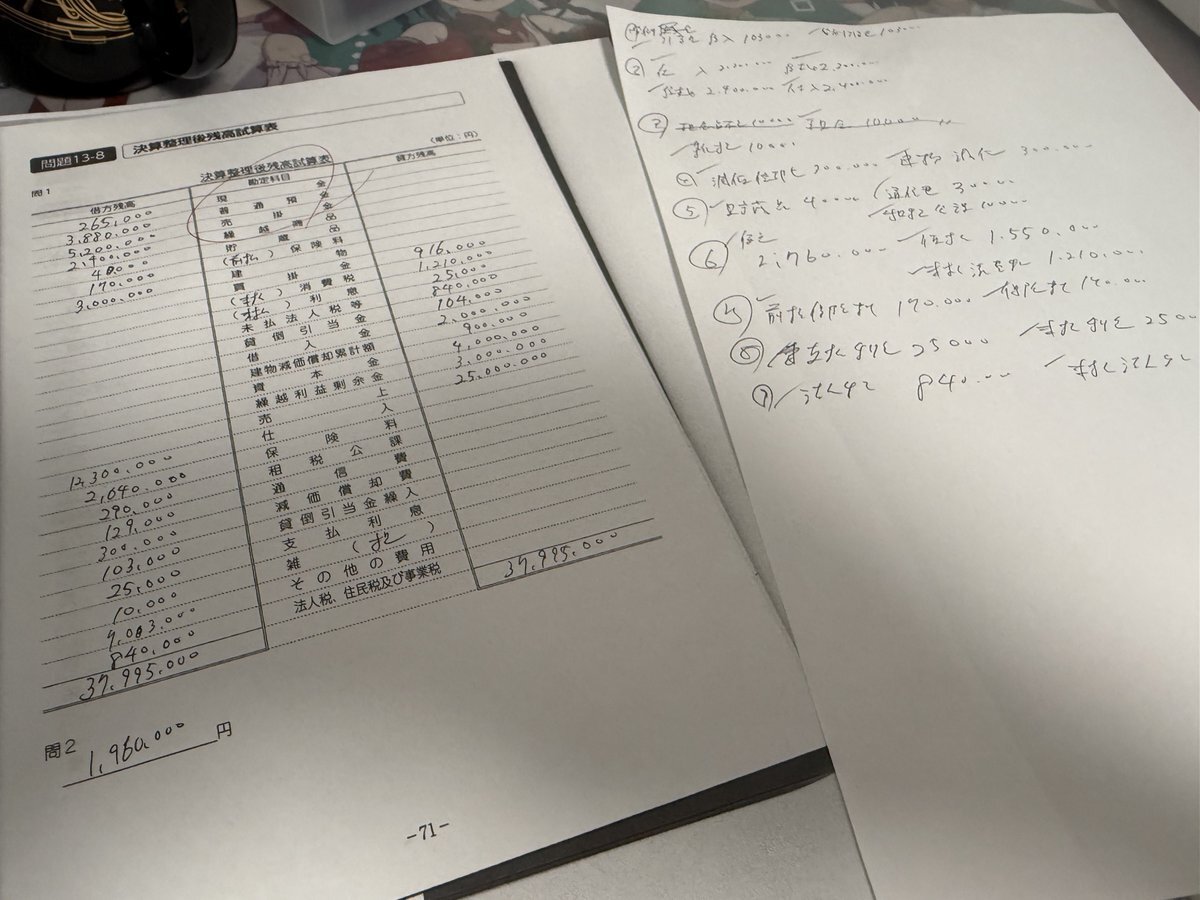 問題13-8 決算整理後残高試算表
問1
決算整理後残高試算表
(単位:円)
借方残高 勘定科目 貸方残高
265,000 現金
3,880,000 普通預金
5,200,000 売掛金
2,400,000 繰越商品
40,000 貯蔵品
170,000 (前払)保険料
3,000,000 建物
買掛金 916,000
(未払)消費税 1,210,000
(未払)利息 25,000
未払法人税等 840,000
貸倒引当金 104,000
借入金 2,000,000
建物減価償却累計額 900,000
資本金 4,000,000
繰越利益剰余金 3,000,000
売上 25,000,000
12,300,000 仕入
2,040,000 保険料
290,000 租税公課
129,000 通信費
300,000 減価償却費
103,000 貸倒引当金繰入
25,000 支払利息
10,000 雑( )
9,003,000 その他の費用
840,000 法人税、住民税及び事業税
37,995,000 37,995,000
問2
1,960,000円
-71-
入 103000
② 仕 入 2,200,000
2,400,000 仕入 2,400,000
③ 10000 現金 10000
④ 300,000 建物 300,000
⑤ 40000 通信費 30000
租税公課 10000
⑥ 2,760,000 1,550,000
1,210,000
170,000
⑧ 25000 2500
⑨ 840,000